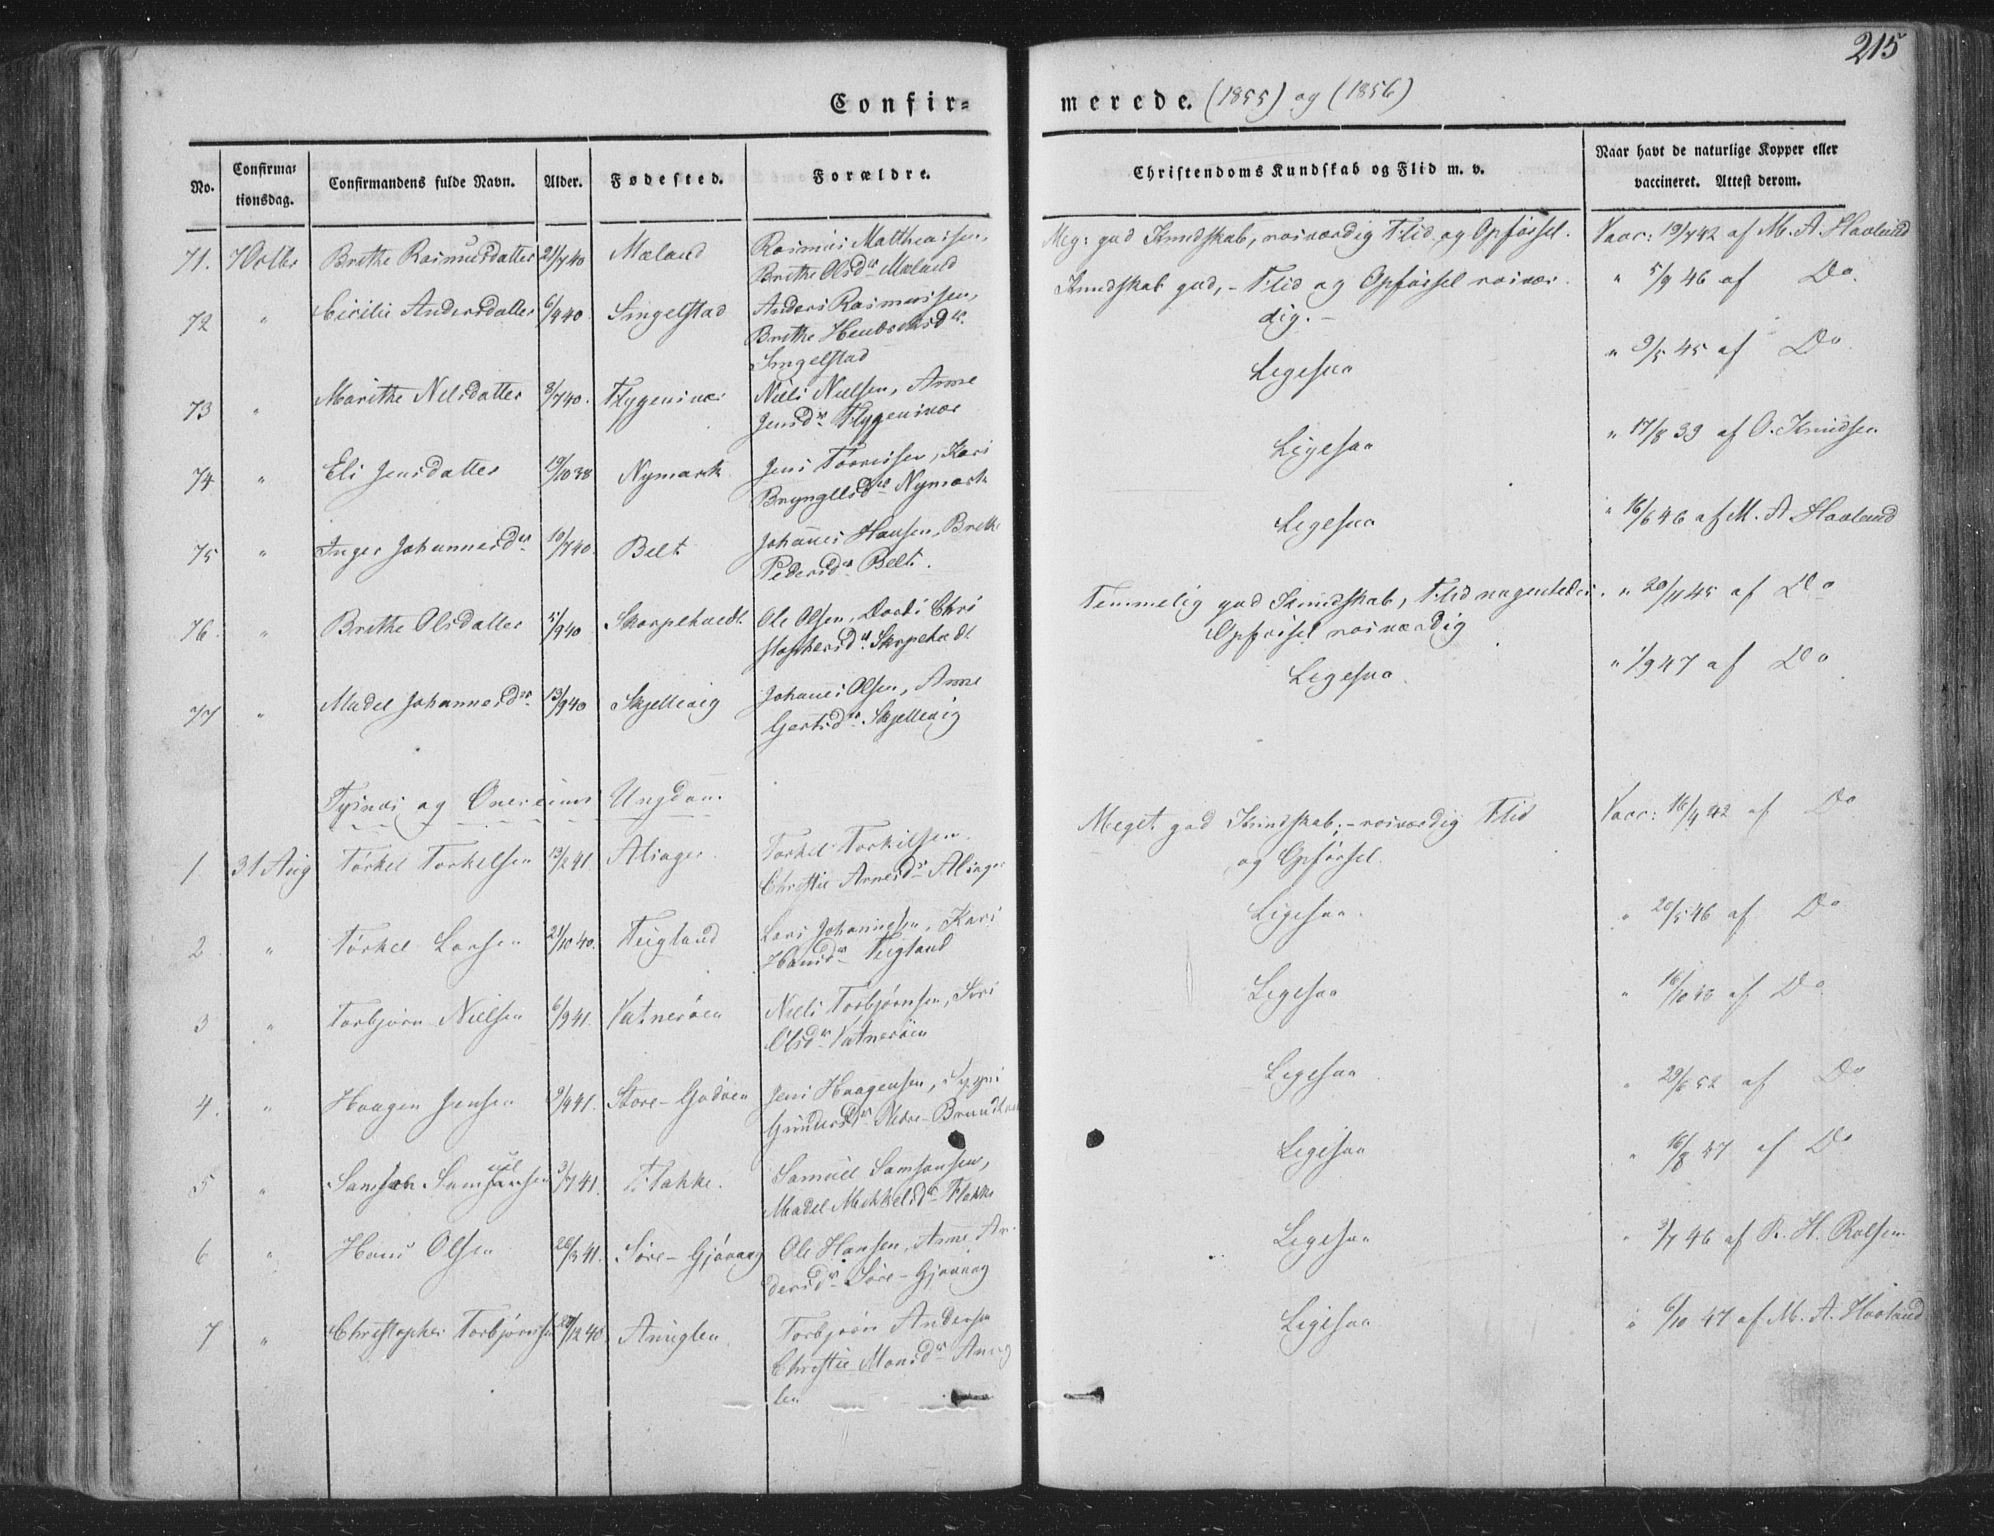 215
Confir-
merede. (1855) og (1856)
No.
Confirma-
tionsdag.
Confirmandens fulde Navn.
Alder.
Fødested.
Forældre.
Christendoms Kundskab og Flid m. v.
Naar havt de naturlige Kopper eller
vaccineret. Attest derom.
71. 7 Brithe Rasmusdatter 21/7 40 Mæland Rasmus Matthiassen,
Brithe Olsdr Mæland
Meg: god Kundskab, roisværdig Flid og Opførsel. Vacc: 19/7 42 af M. A. Haaland
72 " Cicilie Andersdatter 6/9 40 Singelstad Anders Rasmussen,
Brithe
Singelstad
Kundskab god, - Flid og Opførsel roisvær-
dig. -
" 5/9 46 af Do
73 " Marithe Nilsdatter 8/7 40. Flygensvær Niels Nielsen, Anne
Jensdr Flygensvær
Ligesaa
" 9/5 45 af Do
74 " Eli Jensdatter 19/10 38 Nymark Jens Kari
Bryngelsdr Nymark
Ligesaa
" 17/8 39 af O. Knudsen
75 " Inger Johannesdr 10/7 40. Belt Johannes Hansen, Brithe
Pedersdr Belt.
Ligesaa
" 16/6 46 af M. A. Haaland
76. " Brithe Olsdatter 5/9 40 Ole Olsen, Chri
stophersdr
Temmelig god Kundskab, Flid nogenledes.
Opførsel roisværdig
" 20/11 45 af Do
77 " Madel Johannesdr 13/9 40 Skjellevig Johannes Olsen, Anne
Gertsdr Skjellevig
Ligesaa.
" 1/9 47 af Do
Tysnæs og Onereims Ungdom
1. 31 Aug Torkel Torkelsen 13/2 41. Alsager Torkel Torkelsen.
Christie Arnesdr
Meget god Kundskab; - roisværdig Flid
og Opførsel.
Vacc: 16/9 42 af Do
2. " Torkel Larsen 21/10 40. Teigland Lars Johannesen, Kari
Hansdr Teigland
Ligesaa.
" 20/5 46 af Do
3 " Torbjørn Nielsen 6/3 41. Vatnerøen Niels Torbjørnsen,
Olsdr Vatnerøen
Ligesaa
" 16/10 48 af Do
4. " Haagen Jensen 9/4 41. Store-Godøen Jens Haagensen,
Gundersdr Nedre-
Ligesaa
" 29/6 52 af Do
5 " Samuel 3/7 41. Flakke. Samuel Samsonsen,
Madel Mikkelsdr Flakke
Ligesaa
" 16/8 47 af Do
6 " Hans Olsen 26/3 41. Søre-Gjøvaag Ole Hansen, Anne An-
dersdr Søre-Gjøvaag
Ligesaa
" 3/7 46 af R. H. Rolfsen
7 " Christopher Torbjørnsen 29/12 40. Anuglen Torbjørn Andersen
Christie Monsdr Anug
len
Ligesaa
" 6/10 47 af M. A. Haaland